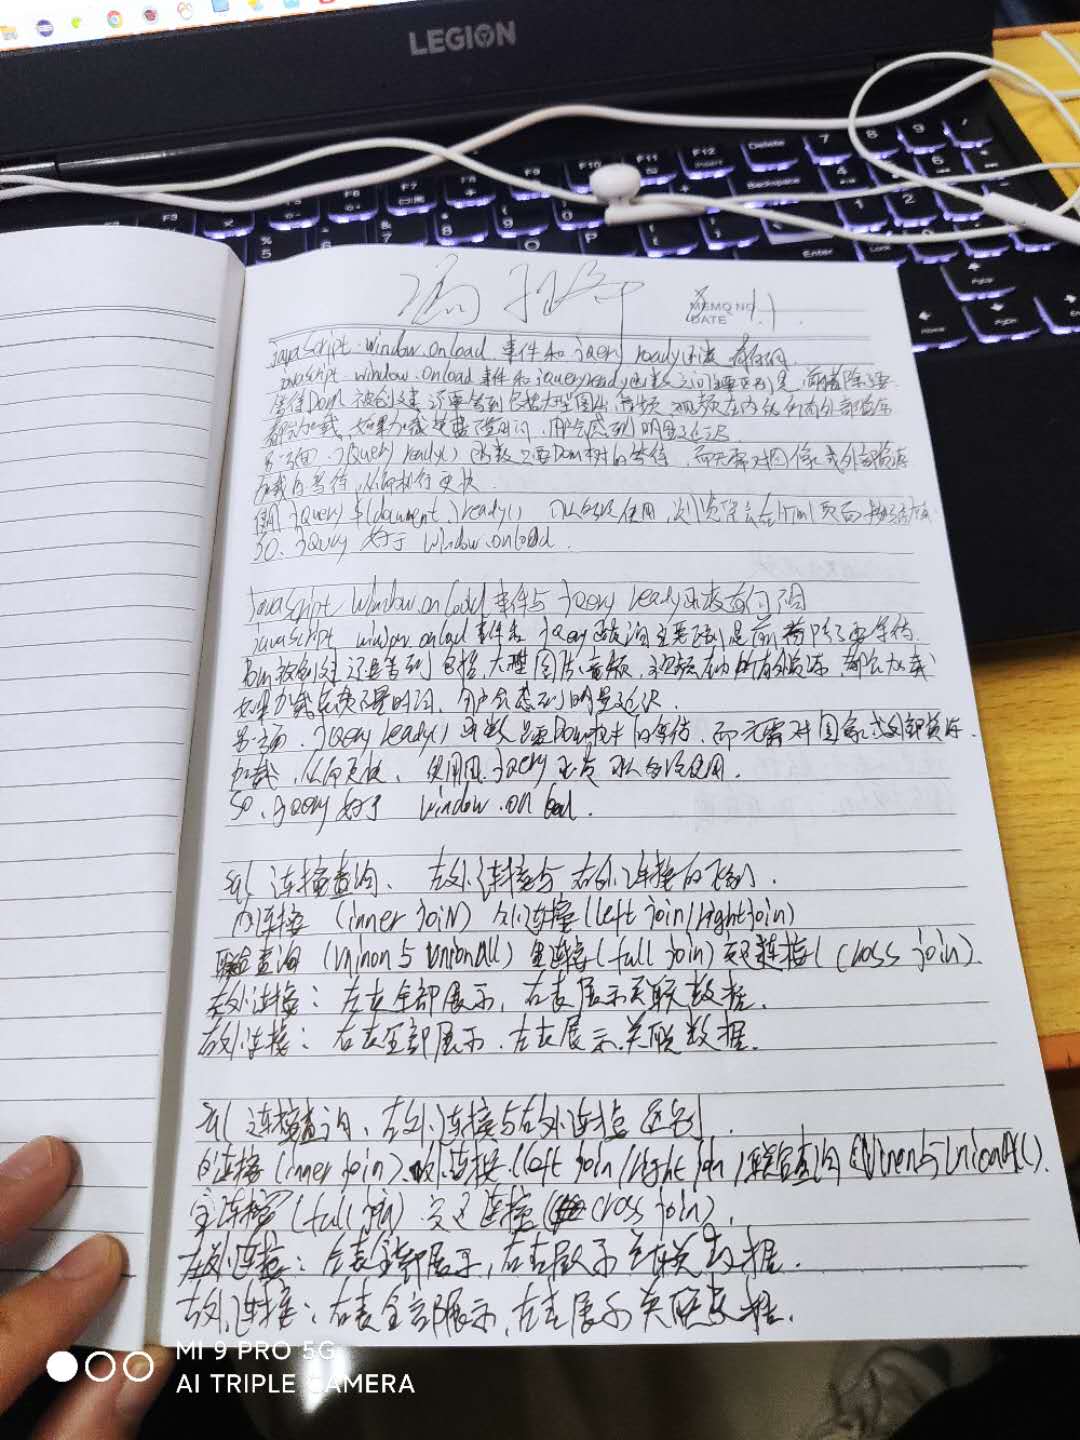 LEGION
MEMO NO.
DATE 1.1
JavaScript window.onload 事件和 jQuery ready 函数有何不同
JavaScript window.onload 事件和 jQuery ready 函数之间主要区别是,前者除了要
等待Dom 被创建还要等到包括大型图片、音频、视频在内的所有外部资源
都加载,如果加载 时间,用户会感到明显延迟.
另一方面,jQuery ready() 函数只要Dom树的等待,而无需对图像或外部资源
加载的等待,从而执行更快.
使用 jQuery $(document).ready() 可以多次使用,浏览器会在html页面
SO, jQuery 好于 window.onload.
JavaScript window.onload 事件与 jQuery ready函数有何不同
JavaScript window.onload 事件和 jQuery 函数 主要区别是前者除了要等待
Dom被创建还要等到包括,大型图片,音频,视频在内的所有外资源,都会加载
如果加载 时间,用户会感到明显延迟.
另一方面,jQuery ready() 函数只要Dom树的等待,而无需对图像或外部资源
加载,从而更快,使用 jQuery 可以多次使用.
SO,jQuery 好于 window.onload.
sql 连接查询、左外连接与右外连接的区别.
内连接 (inner join) 外连接(left join/right join)
联合查询 (Uninon与Unionall) 全连接(full join) 交叉连接( cross join).
左外连接:左表全部展示,右表展示关联数据.
右外连接:右表全部展示,左表展示关联数据.
sql 连接查询,左外连接与右外连接区别.
内连接 (inner join)、外连接 (left join/right join)联合查询(Uninon与UnionAll).
全连接 (full join) 交叉连接 (cross join).
左外连接:左表全部展示,右表展示关联数据.
右外连接:右表全部展示,左表展示关联数据.
MI 9 PRO 5G
AI TRIPLE CAMERA